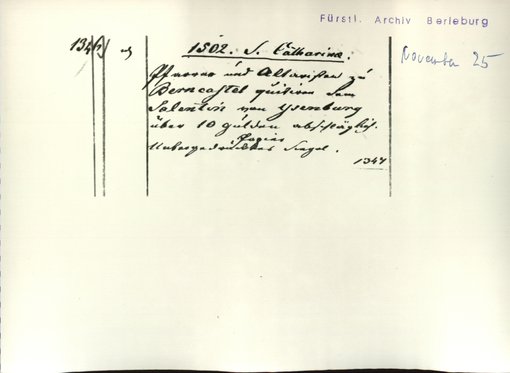 Fürstl. Archiv Berleburg
November 25
1502. S. Catharina.
Pfarrer und Altaristen zu
Berncastel quitiren dem
Salentin von Ysenburg
über 10 gulden abschlägl.
Papier
Untergedrücktes Siegel.
1347